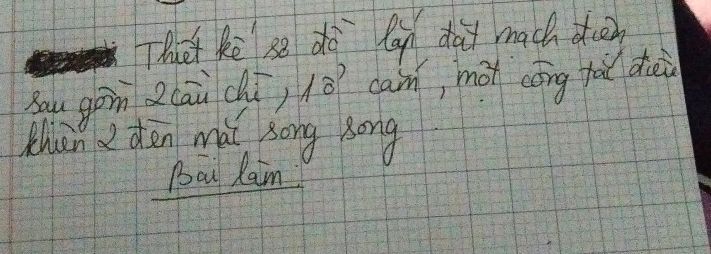 Thiết kế sơ đồ lắp đặt mạch điện
sau gồm 2 cầu chì, 1 ổ cắm, một công tắc điều
khiển 2 đèn mắc song song
Bài làm: